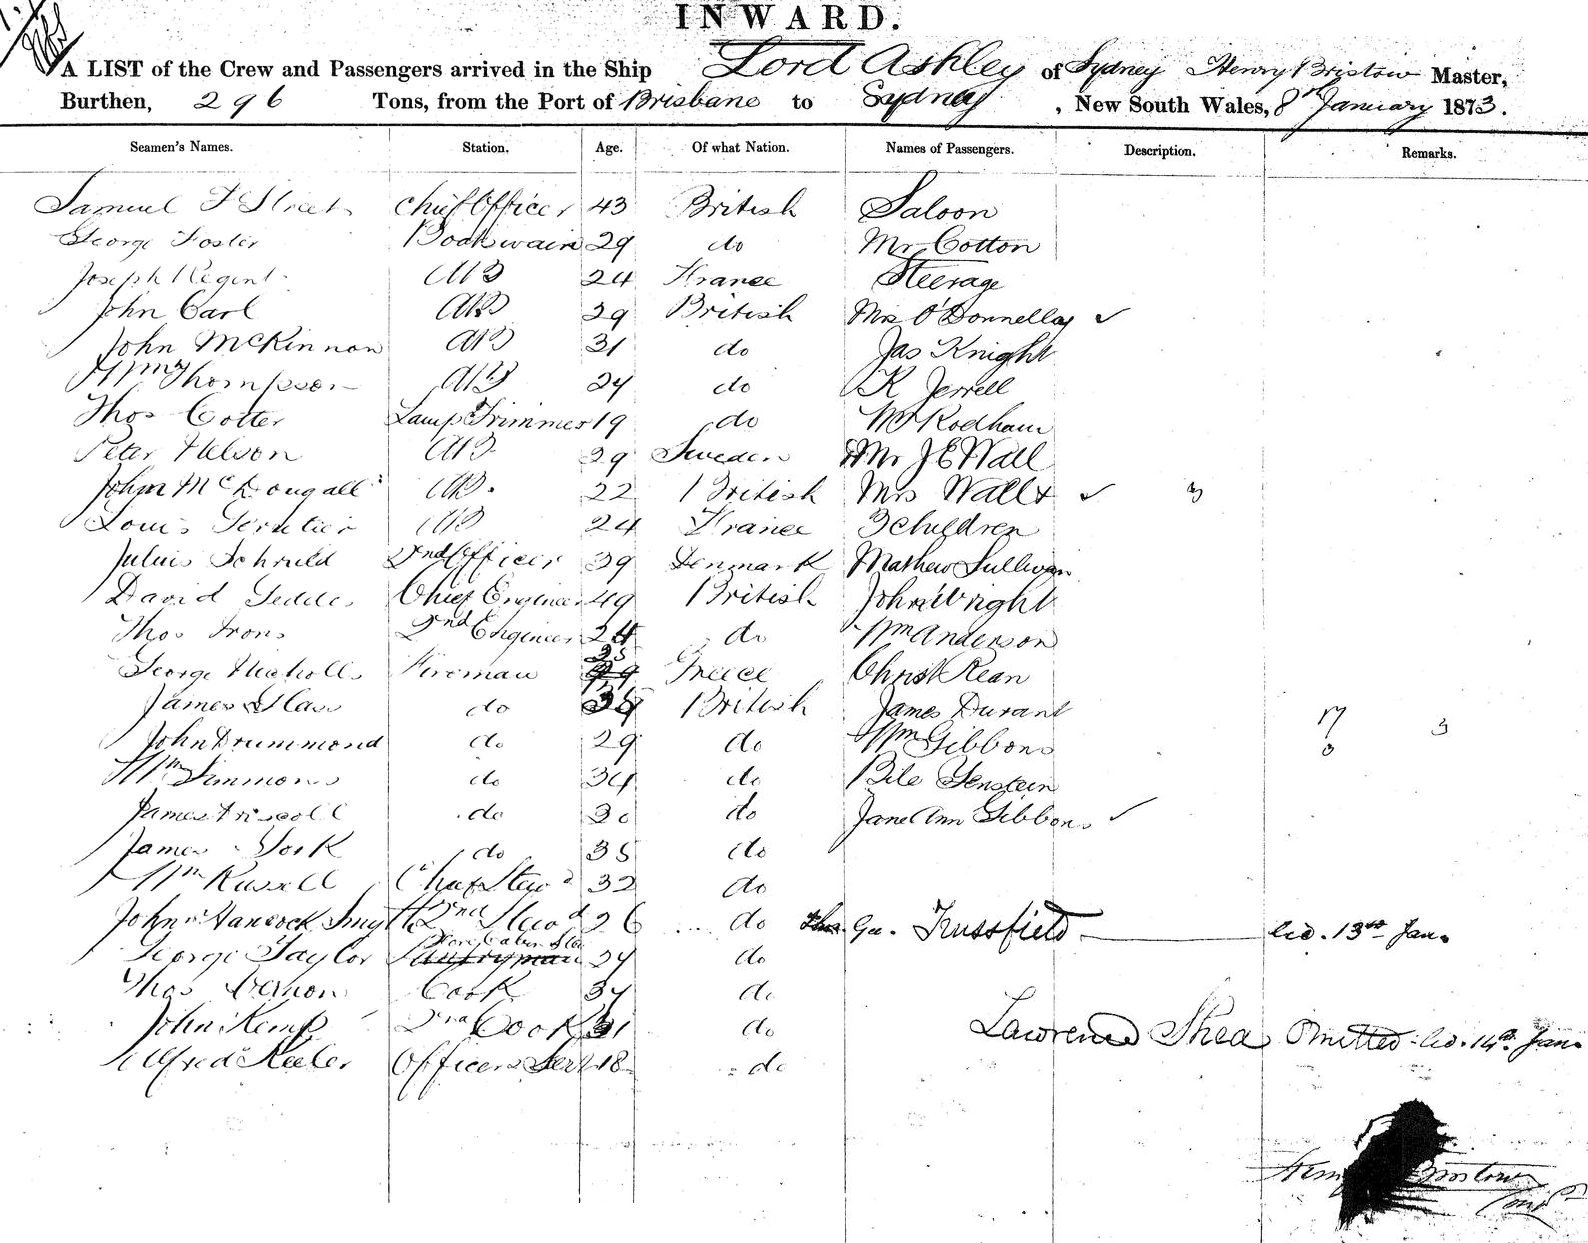 INWARD.
A LIST of the Crew and Passengers arrived in the Ship Lord Ashley of Sydney Henry Bristow Master,
Burthen, 296 Tons, from the Port of Brisbane to Sydney, New South Wales, 8th January 1873.
Seamen's Names. Station. Age. Of what Nation. Names of Passengers. Description. Remarks.
Samuel F Street Chief Officer 43 British Saloon
George Foster Boatswain 29 do Mr Cotton
Joseph Regent AB 24 France Steerage
John Carl AB 29 British Mrs O'Donnell
John McKinnon AB 31 do Jas Knight
Wm Thompson AB 24 do K Jerrell
Thos Cotter Lamp Trimmer 19 do Mr Rodham
Peter Nelson AB 29 Sweden Mr J E Wall
John McDougall AB. 22 British Mrs Wall & 3
Louis AB 24 France 3 children
Julius Officer 39 Denmark Mathew Sullivan
David Geddes Chief Engineer 49 British John Wright
Thos Irons 2nd Engineer 24 do Wm Anderson
George Nicholls Fireman 25 Greece Christ Kean
James do British James Durant
John Drummond do 29 do Wm Gibbons 3
Wm Simmons do 34 do
James Driscoll do 30 do Jane Ann Gibbons
James York do 35 do
Wm Russell Chief Stewd 32 do
John Hancock Smyth 2nd Stewd 26 do Geo. Trussfield 13th Jan.
George Taylor Fore Cabin Stew Pantryman 24 do
Thos Vernon Cook 37 do
John Kemp 2nd Cook 31 do Lawrence Shea Omitted 14th Jan
Alfred Keeler Officers Servt 18 do
Henry Bristow